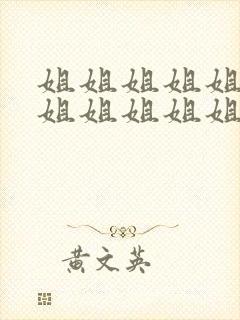 姐姐姐姐姐
姐姐姐姐姐
黄文英